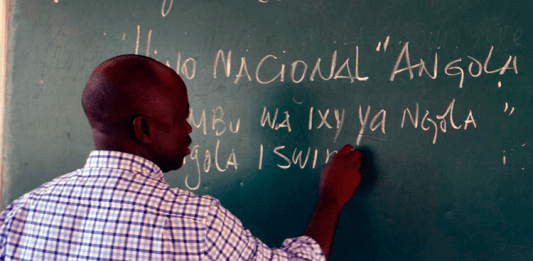 Hino Nacional "Angola
mbu wa ixy ya Ngola"
gola iswi